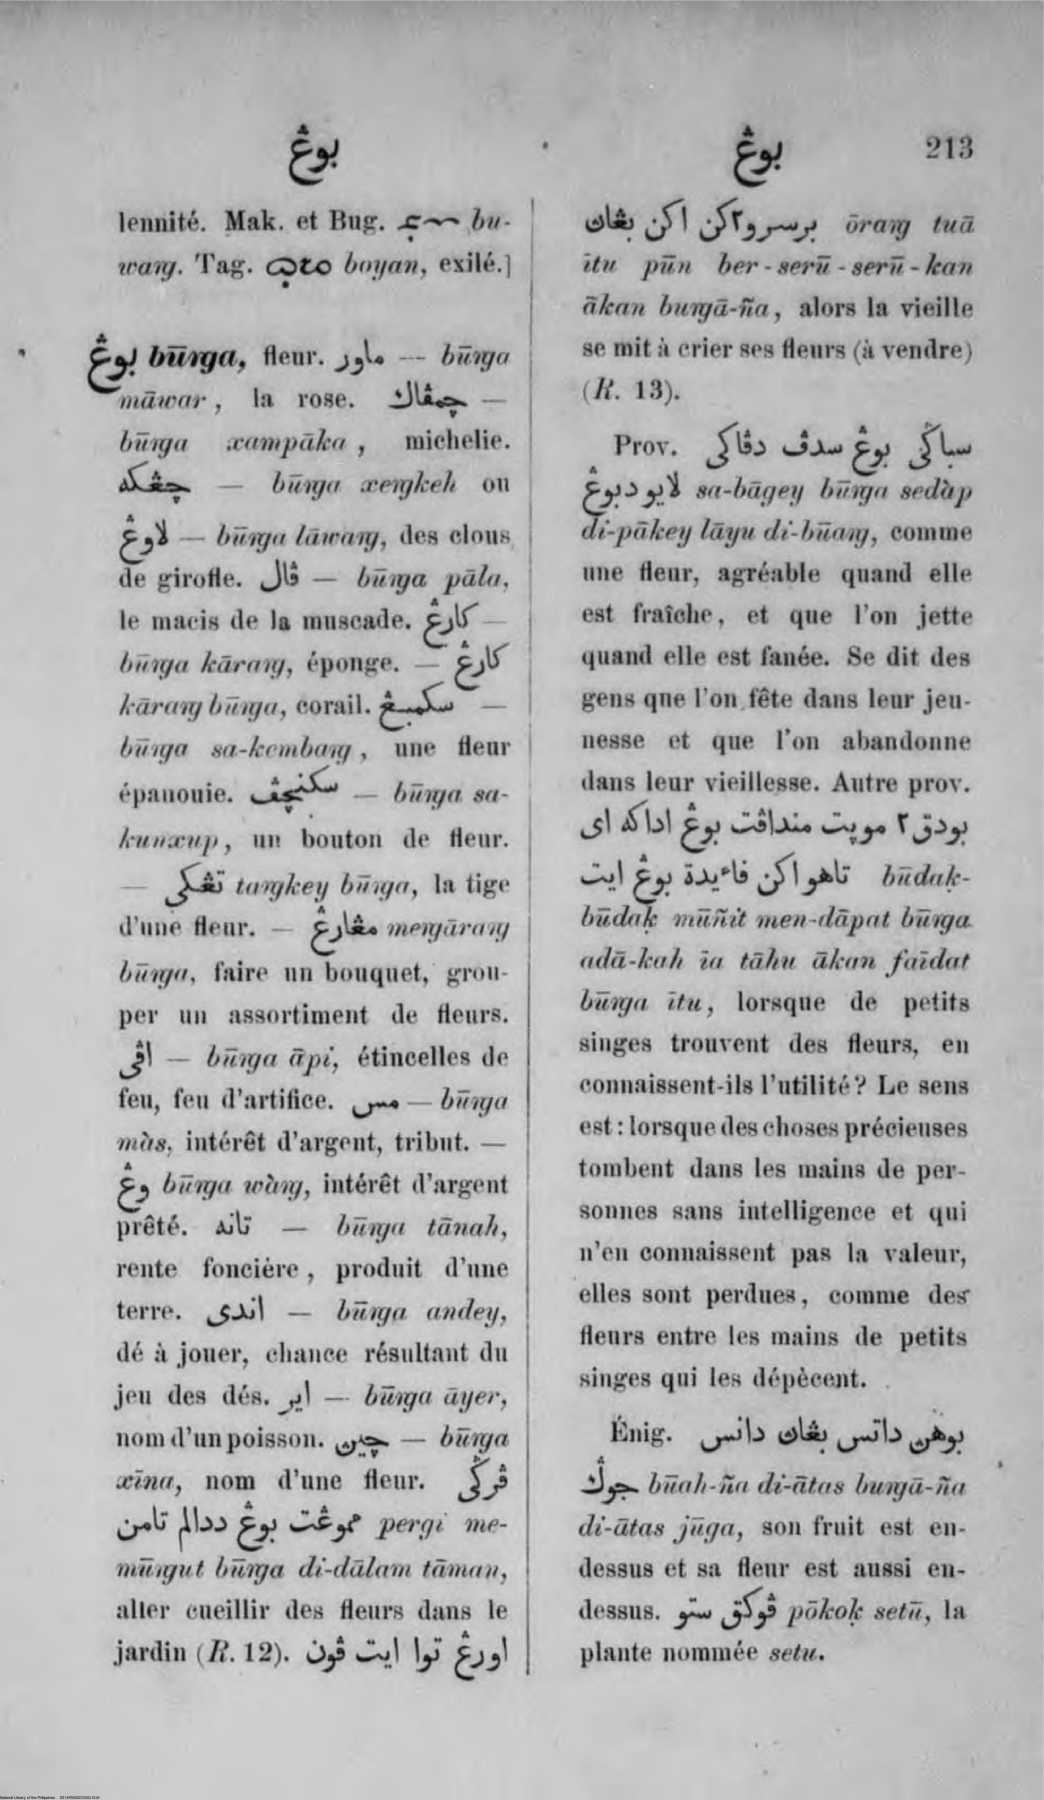 بوڠ
بوڠ 213
lennité. Mak. et Bug. bu-
waŋ. Tag. boyan, exilé.]
بوڠ būŋa, fleur. ماور — būŋa
māwar, la rose. چمڤاك —
būŋa xampāka, michelie.
چڠكه — būŋa xeŋkeh ou
لاوڠ — būŋa lāwaŋ, des clous
de girofle. ڤال — būŋa pāla,
le macis de la muscade. كارڠ —
būŋa kāraŋ, éponge. — كارڠ
kāraŋ būŋa, corail. سكمبڠ —
būŋa sa-kembaŋ, une fleur
épanouie. سكنچڤ — būŋa sa-
kunxup, un bouton de fleur.
— تڠكي taŋkey būŋa, la tige
d'une fleur. — مڠارڠ meŋāraŋ
būŋa, faire un bouquet, grou-
per un assortiment de fleurs.
اڤي — būŋa āpi, étincelles de
feu, feu d'artifice. مس — būŋa
màs, intérêt d'argent, tribut. —
وڠ būŋa wàŋ, intérêt d'argent
prêté. تانه — būŋa tānah,
rente foncière, produit d'une
terre. اندى — būŋa andey,
dé à jouer, chance résultant du
jeu des dés. اير — būŋa āyer,
nom d'un poisson. چين — būŋa
xīna, nom d'une fleur. ڤرݢي
مموڠت بوڠ ددالم تامن pergi me-
mūŋut būŋa di-dālam tāman,
aller cueillir des fleurs dans le
jardin (R. 12). اورڠ توا ايت ڤون
برسرو٢كن اكن بڠاڽ ōraŋ tuā
ītu pūn ber-serū-serū-kan
ākan buŋā-ña, alors la vieille
se mit à crier ses fleurs (à vendre)
(R. 13).
Prov. سباݢي بوڠ سدڤ دڤاكى
لايو دبوڠ sa-bāgey būŋa sedàp
di-pākey lāyu di-būaŋ, comme
une fleur, agréable quand elle
est fraîche, et que l'on jette
quand elle est fanée. Se dit des
gens que l'on fête dans leur jeu-
nesse et que l'on abandonne
dans leur vieillesse. Autre prov.
بودق٢ موڽت منداڤت بوڠ اداكه اى
تاهو اكن فاءيدة بوڠ ايت būdaḳ-
būdaḳ mūñit men-dāpat būŋa
adā-kah īa tāhu ākan faīdat
būŋa ītu, lorsque de petits
singes trouvent des fleurs, en
connaissent-ils l'utilité? Le sens
est: lorsque des choses précieuses
tombent dans les mains de per-
sonnes sans intelligence et qui
n'en connaissent pas la valeur,
elles sont perdues, comme des
fleurs entre les mains de petits
singes qui les dépècent.
Énig. بوهڽ داتس بڠاڽ داتس
جوݢ būah-ña di-ātas buŋā-ña
di-ātas jūga, son fruit est en-
dessus et sa fleur est aussi en-
dessus. ڤوكق ستو pōkoḳ setū, la
plante nommée setu.